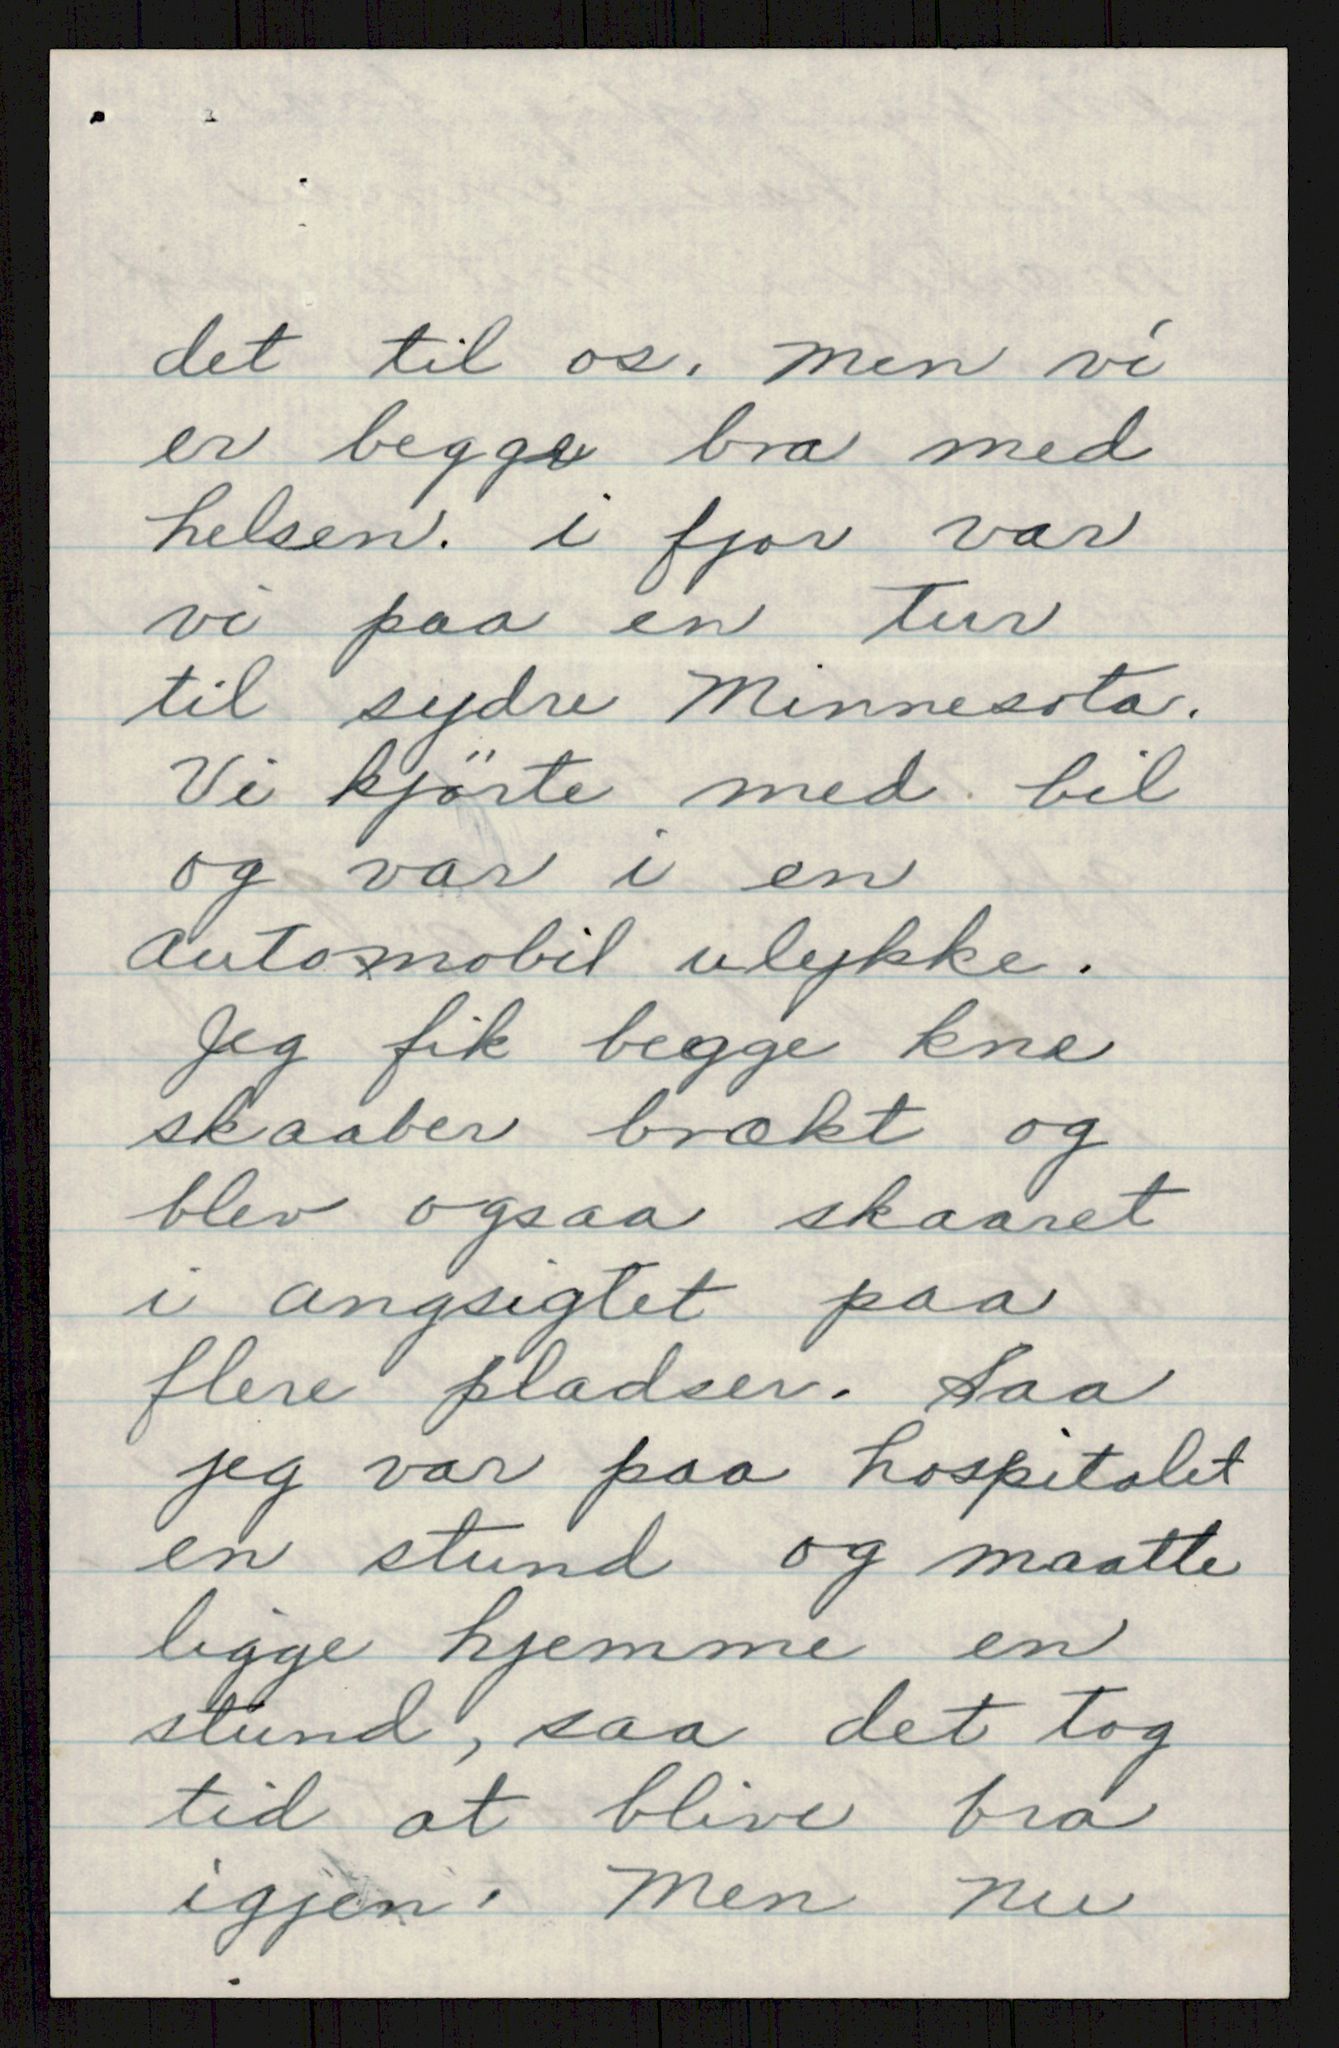 det til os. Men vi
er begge bra med
helsen. i fjor var
vi paa en Tur
til sydre Minnesota.
Vi kjörte med bil
og var i en
automobil ulykke.
Jeg fik begge kne
skaaber brækt og
blev ogsaa skaaret
i angsigtet paa
flere pladser. Saa
jeg var paa hospitalet
en stund og maatte
ligge hjemme en
stund, saa det tog
tid at blive bra
igjen. Men nu